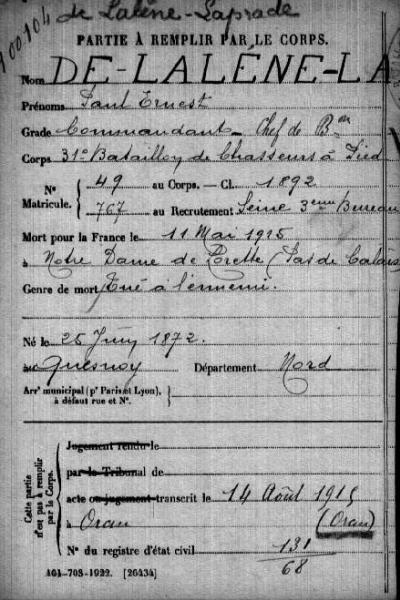 100.104 de Lalène-Laprade
PARTIE À REMPLIR PAR LE CORPS.
Nom DE-LALÈNE-LA
Prénoms Paul Ernest
Grade Commandant - Chef de Bon
Corps 31e Bataillon de Chasseurs à Pied
N° Matricule. 49 au Corps. — Cl. 1892
767 au Recrutement Seine 3eme Bureau
Mort pour la France le 11 Mai 1915
à Notre Dame de Lorette (Pas de Calais
Genre de mort Tué à l'ennemi.
Né le 25 Juin 1872.
au Quesnoy Département Nord
Arrt municipal (pr Paris et Lyon), à défaut rue et N°.
Cette partie n'est pas à remplir par le Corps.
Jugement rendu le
par le Tribunal de
acte ou jugement transcrit le 14 Août 1915
à Oran (Oran)
N° du registre d'état civil 131
68
464-708-1922. [26434]